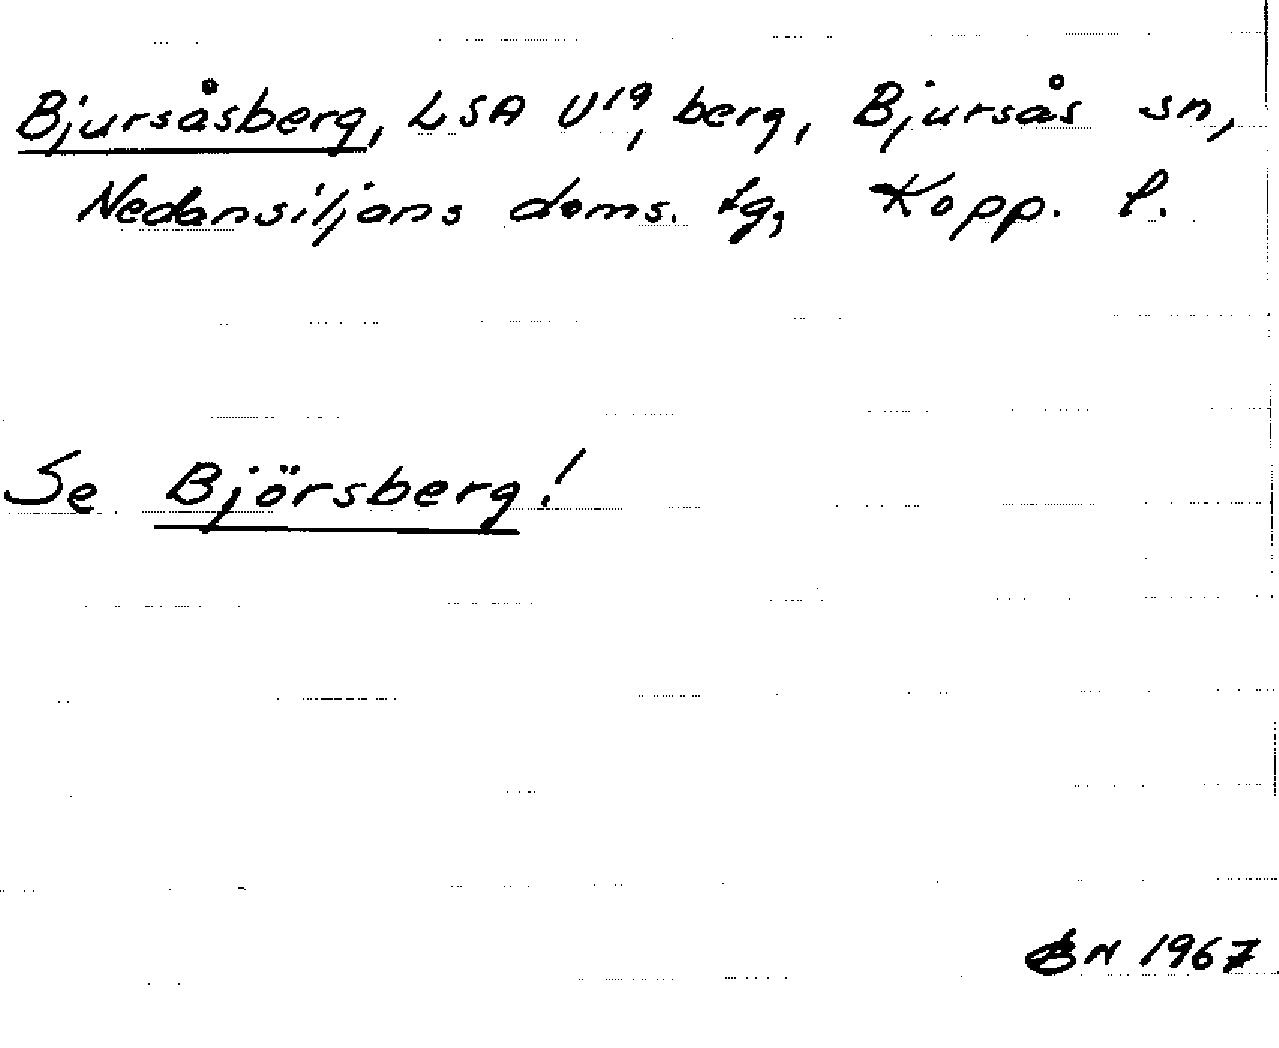 Bjursåsberg, LSA U19, berg, Bjursås sn,
Nedansiljans doms. tg, Kopp. l.
Se Björsberg!
BN 1967